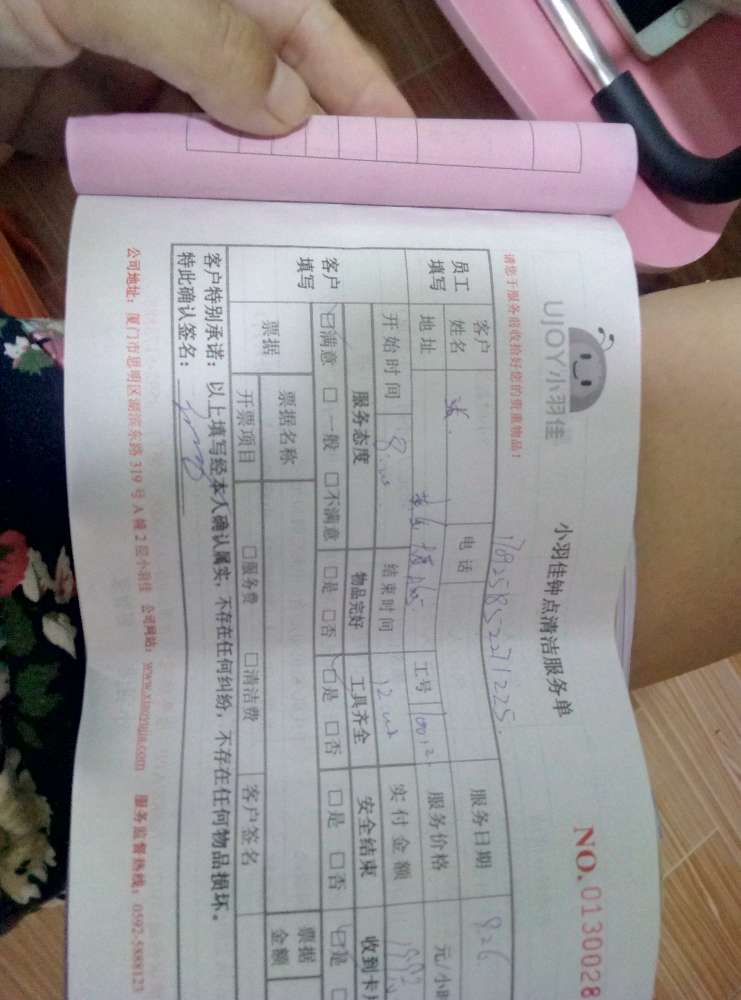 UJOY小羽佳
小羽佳钟点清洁服务单
NO. 0130028
请您于服务前收拾好您的贵重物品！
员工填写
客户姓名
电话
服务日期 826
地址
工号
服务价格 元/小时
开始时间
结束时间
实付金额
客户填写
服务态度 物品完好 工具齐全 安全结束
☑满意 □一般 □不满意 □是 □否 ☑是 □否 □是 □否 ☑是
票据
票据名称
票据金额
开票项目 □服务费 □清洁费 客户签名
客户特别承诺：以上填写经本人确认属实，不存在任何纠纷，不存在任何物品损坏。
特此确认签名：
公司地址：厦门市思明区湖滨东路319号A幢2层小羽佳 公司网站：www.xiaoyujia.com 服务监督热线：0592-5888123